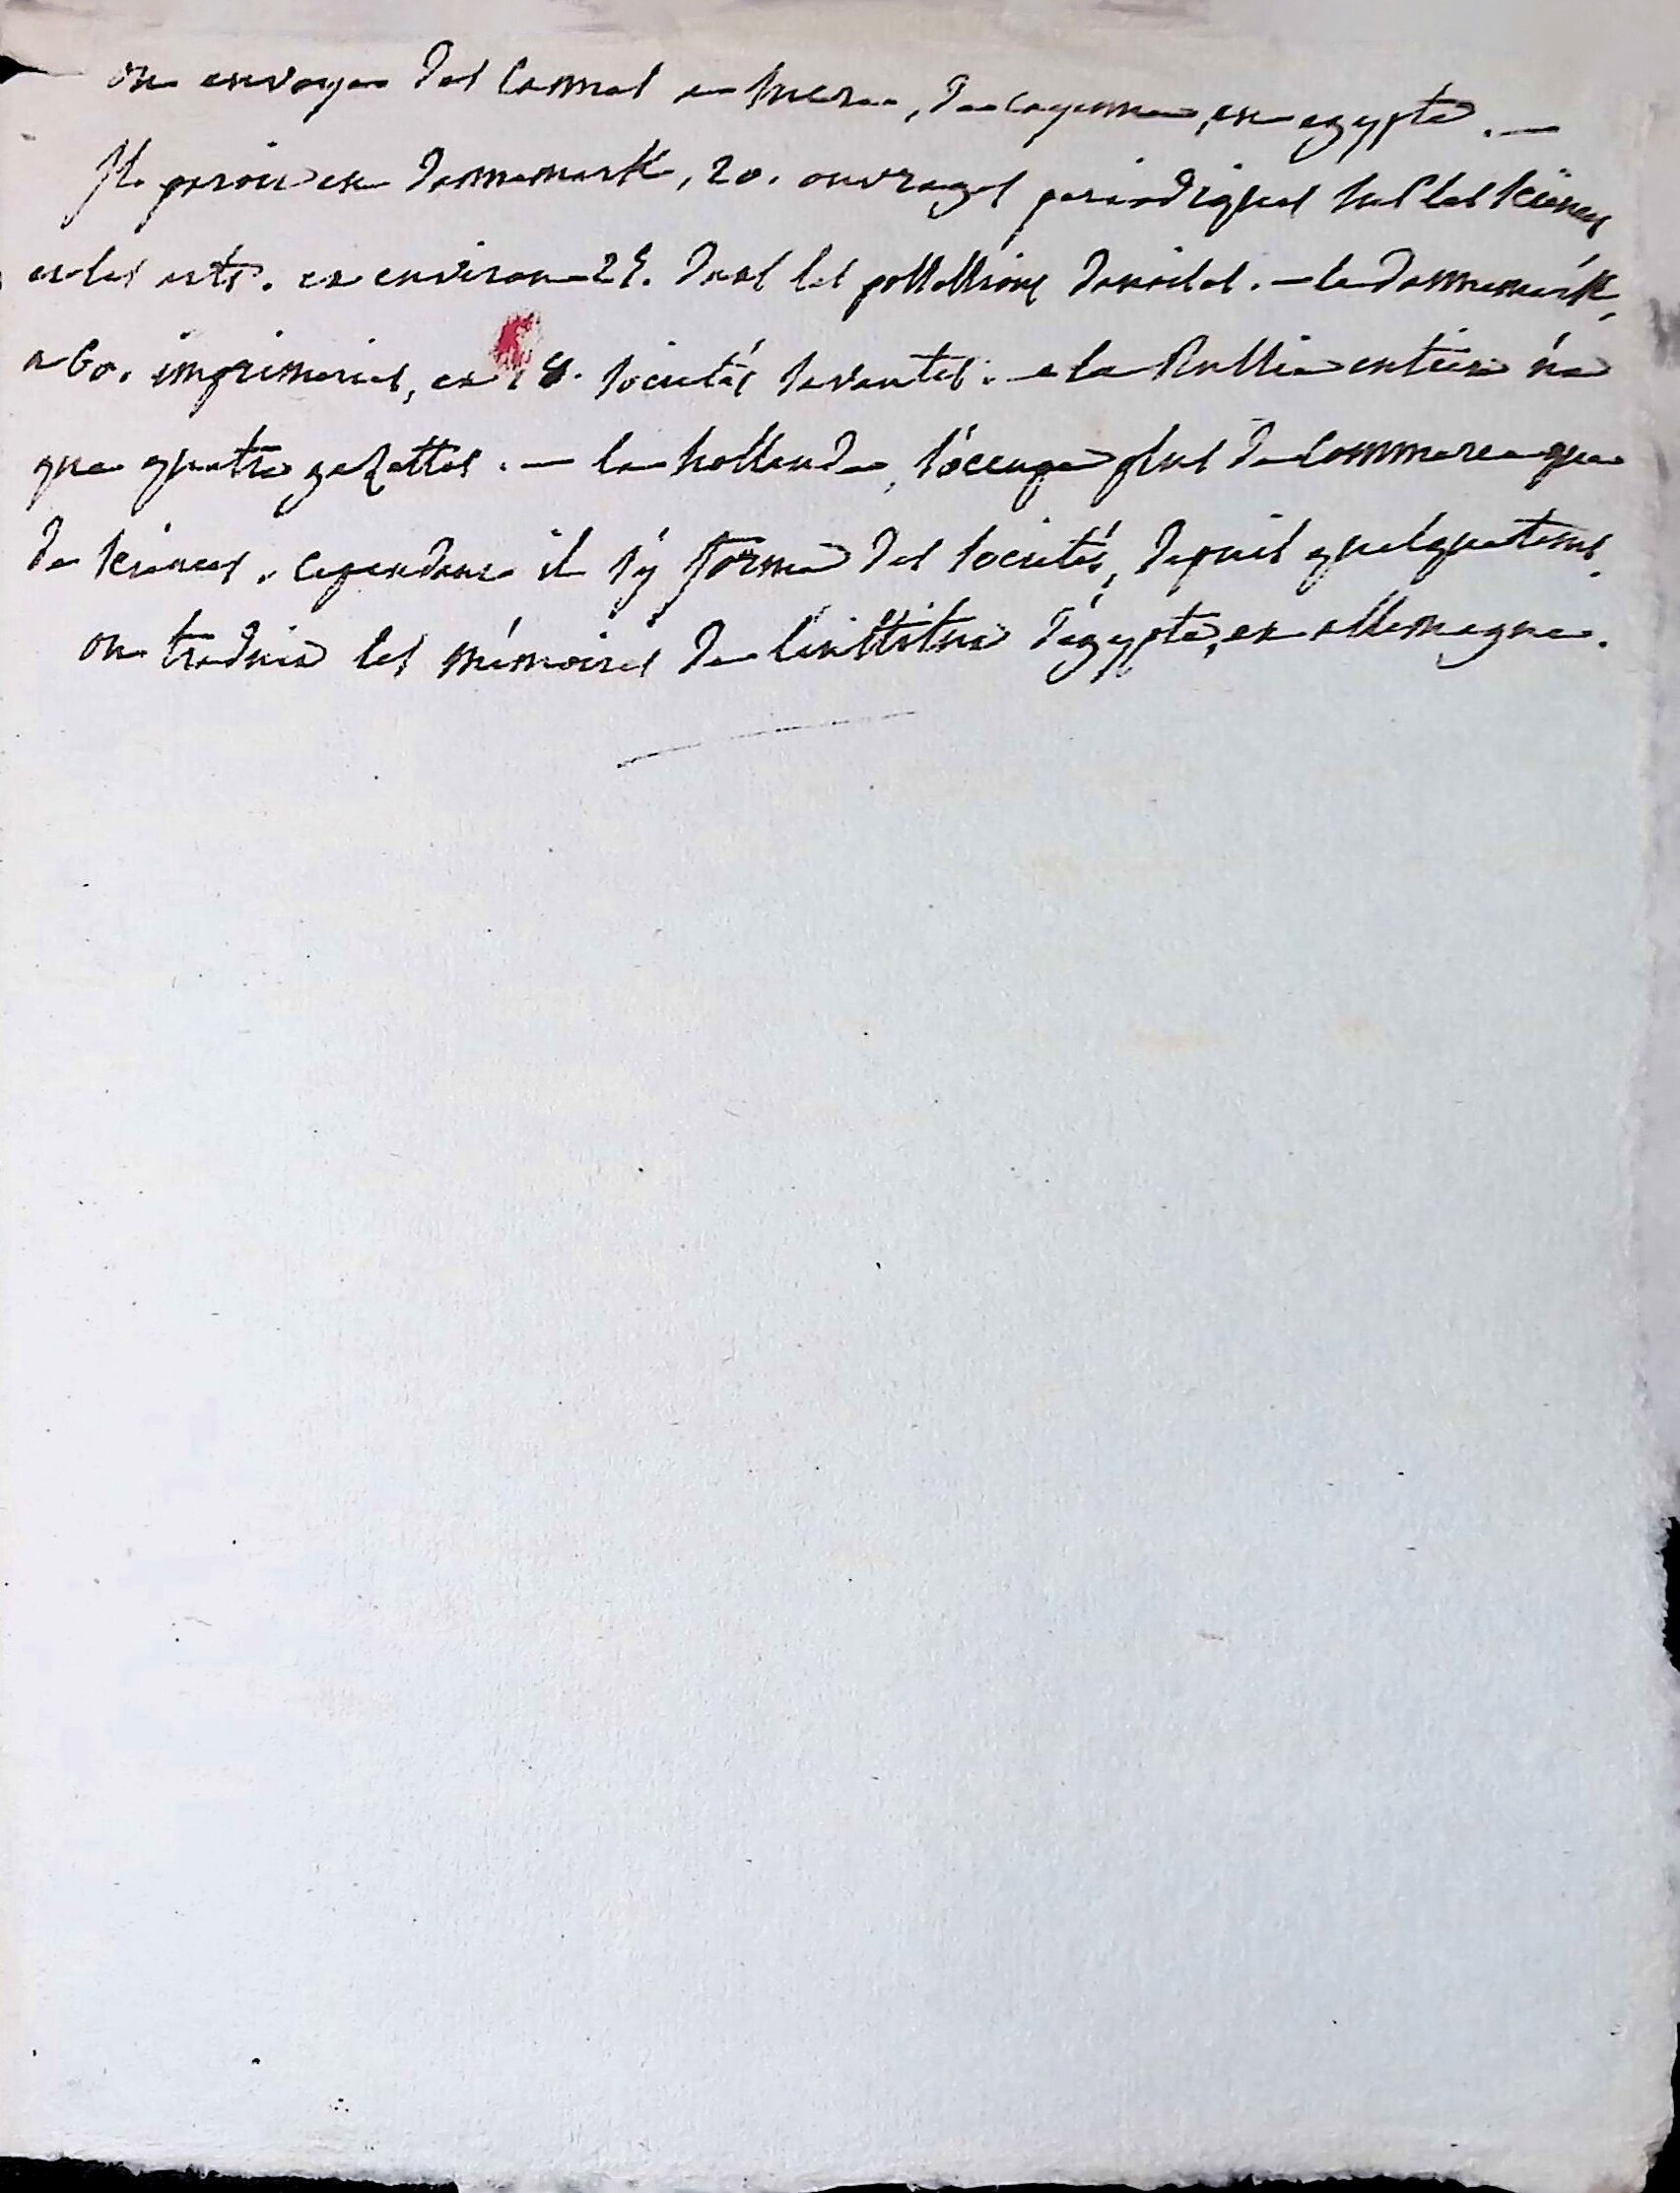 on envoye des cannes a sucre, de cayenne, en egypte. —
Il paroit en dannemark, 20. ouvrages periodiques sur les sciences
et les arts. et environ 25. dans les possessions danoises. — le dannemark,
a 60. imprimeries, et 18. sociétés savantes. — la Russie entiere n'a
que quatre gazettes. — la hollande, s'occupe plus de commerce que
de sciences. cependant il s'y forme des sociétés, depuis quelque tems.
on traduit les mémoires de l'institut d'égypte, en allemagne.